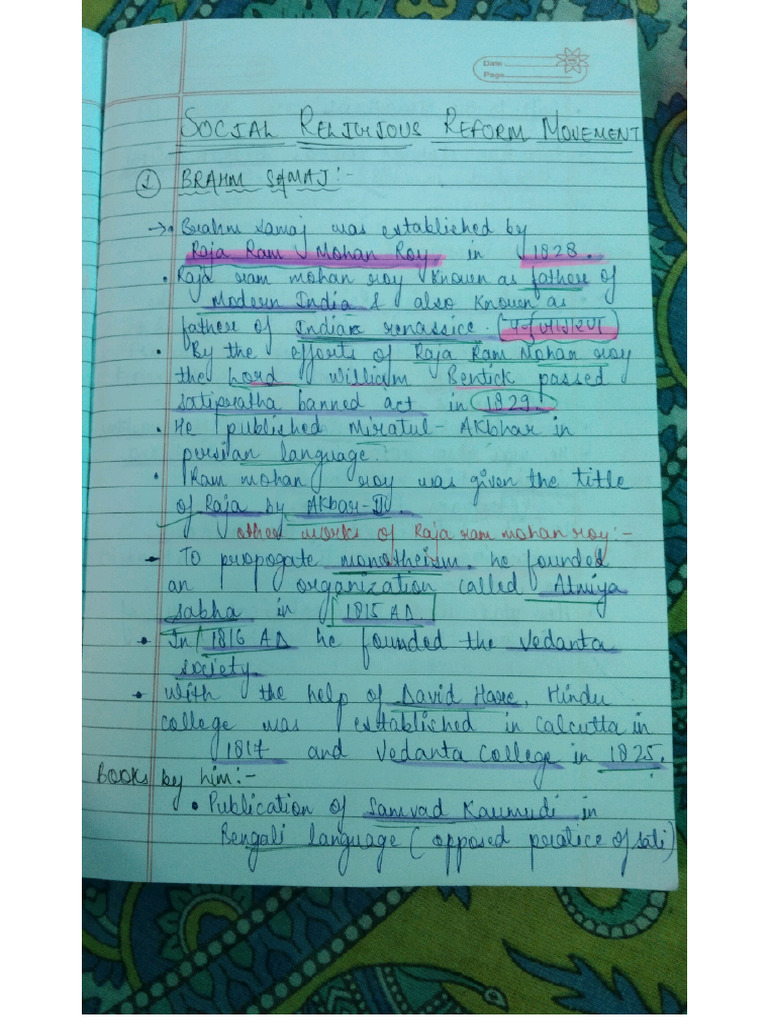 Date
Page
SOCIAL RELIGIOUS REFORM MOVEMENT
① BRAHM SAMAJ:-
→ • Brahm Samaj was established by
Raja Ram Mohan Roy in 1828.
• Raja ram mohan roy known as father of
Modern India & also known as
father of Indian renassice. (पुर्नजागरण)
• By the efforts of Raja Ram Mohan roy
the Lord William Bentick passed
satipratha banned act in 1829.
• He published Miratul-Akbhar in
persian language.
• Ram mohan roy was given the title
of Raja by Akbar-II.
other works of Raja ram mohan roy:-
• To propogate monotheism, he founded
an organization called Atmiya
sabha in 1815 AD
• In 1816 AD he founded the Vedanta
society.
• With the help of David Hare, Hindu
college was established in Calcutta in
1817 and Vedanta College in 1825.
Books by him:-
• Publication of Samvad Kaumudi in
Bengali language (opposed peratice of sati)